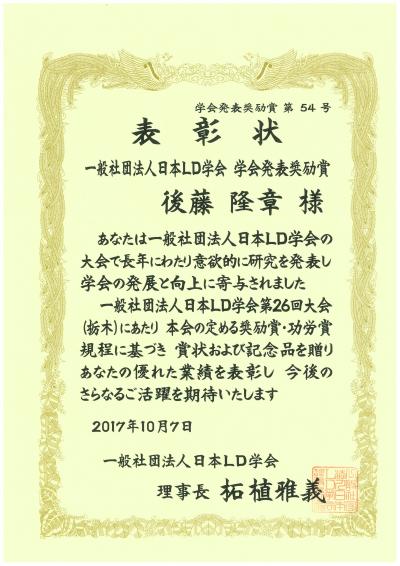 学会発表奨励賞 第 54 号
表彰状
一般社団法人日本LD学会 学会発表奨励賞
後藤 隆章 様
あなたは一般社団法人日本LD学会の
大会で長年にわたり意欲的に研究を発表し
学会の発展と向上に寄与されました
一般社団法人日本LD学会第26回大会
(栃木)にあたり 本会の定める奨励賞・功労賞
規程に基づき 賞状および記念品を贈り
あなたの優れた業績を表彰し 今後の
さらなるご活躍を期待いたします
2017年10月7日
一般社団法人日本LD学会
理事長 柘植雅義